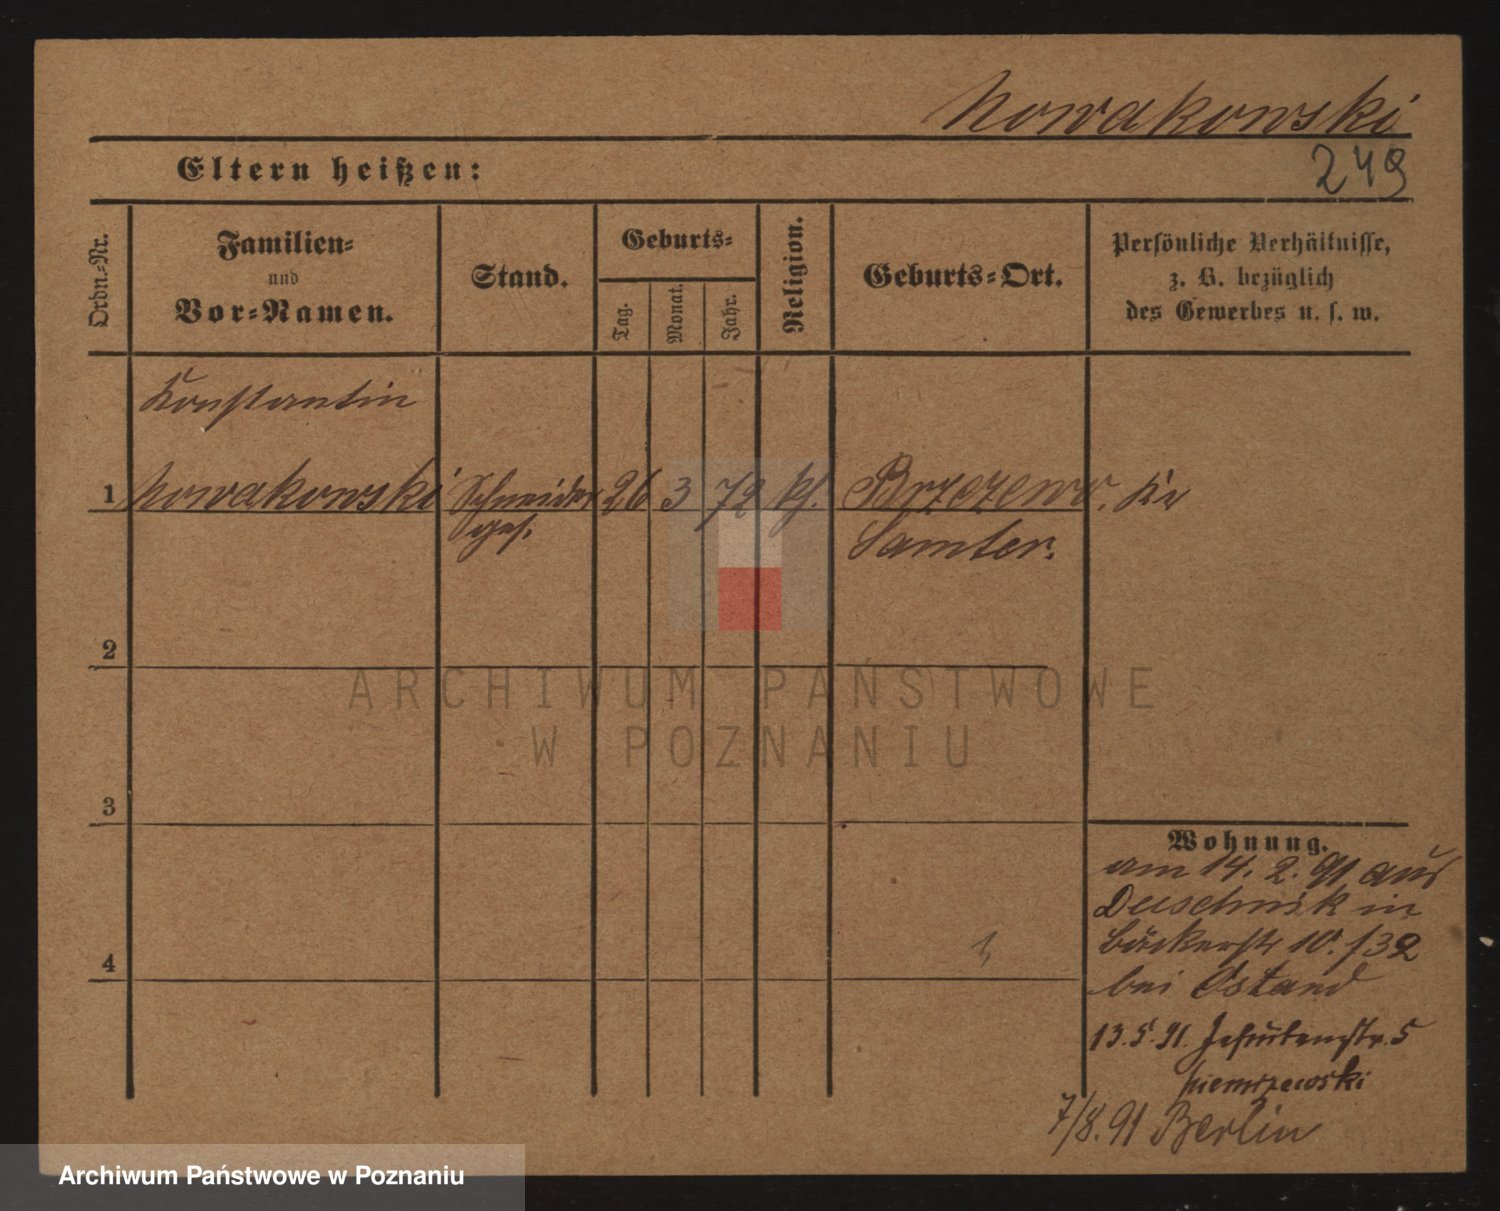 Nowakowski
Eltern heißen:
249
Ordn.-Nr.
Familien-
und
Vor-Namen.
Stand.
Geburts-
Tag.
Monat.
Jahr.
Religion.
Geburts-Ort.
Persönliche Verhältnisse,
z. B. bezüglich
des Gewerbes u. s. w.
Konstantin
1 Nowakowski Schneider 26 3 72 kh. Brzezewo. Kr
ges. Samter.
2
ARCHIWUM PAŃSTWOWE
W POZNANIU
3
Wohnung.
am 14. 2. 91 aus
Duschnik in
Bäckerstr 10. /32
4
bei Ostand
13.5.91. Jesuitenstr. 5
7/8.91 Berlin
Archiwum Państwowe w Poznaniu